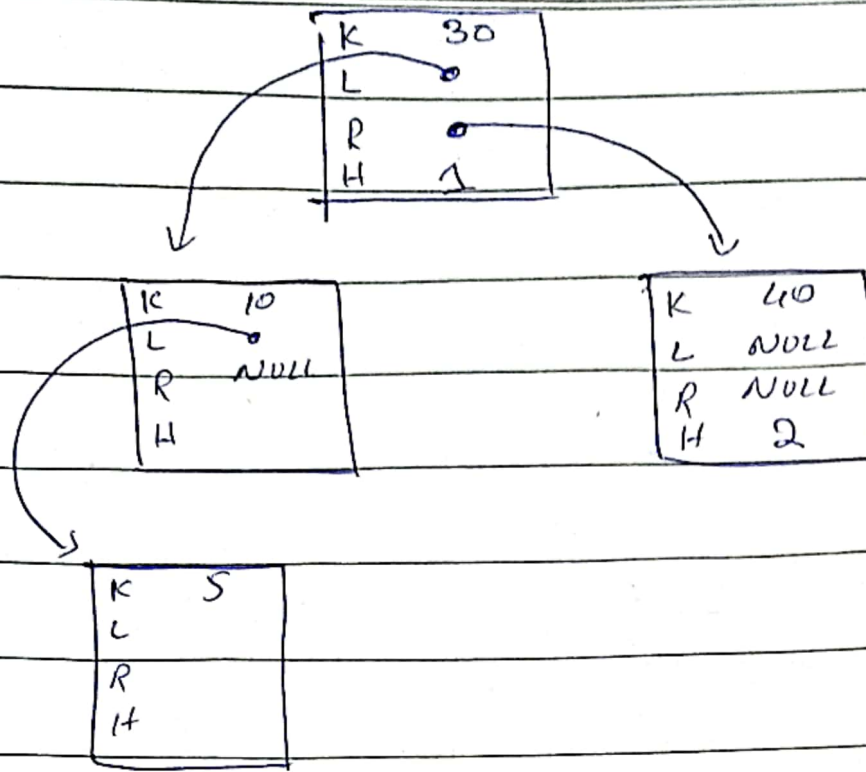 K 30
L
R
H 1
K 10
L
R NULL
H
K 40
L NULL
R NULL
H 2
K 5
L
R
H